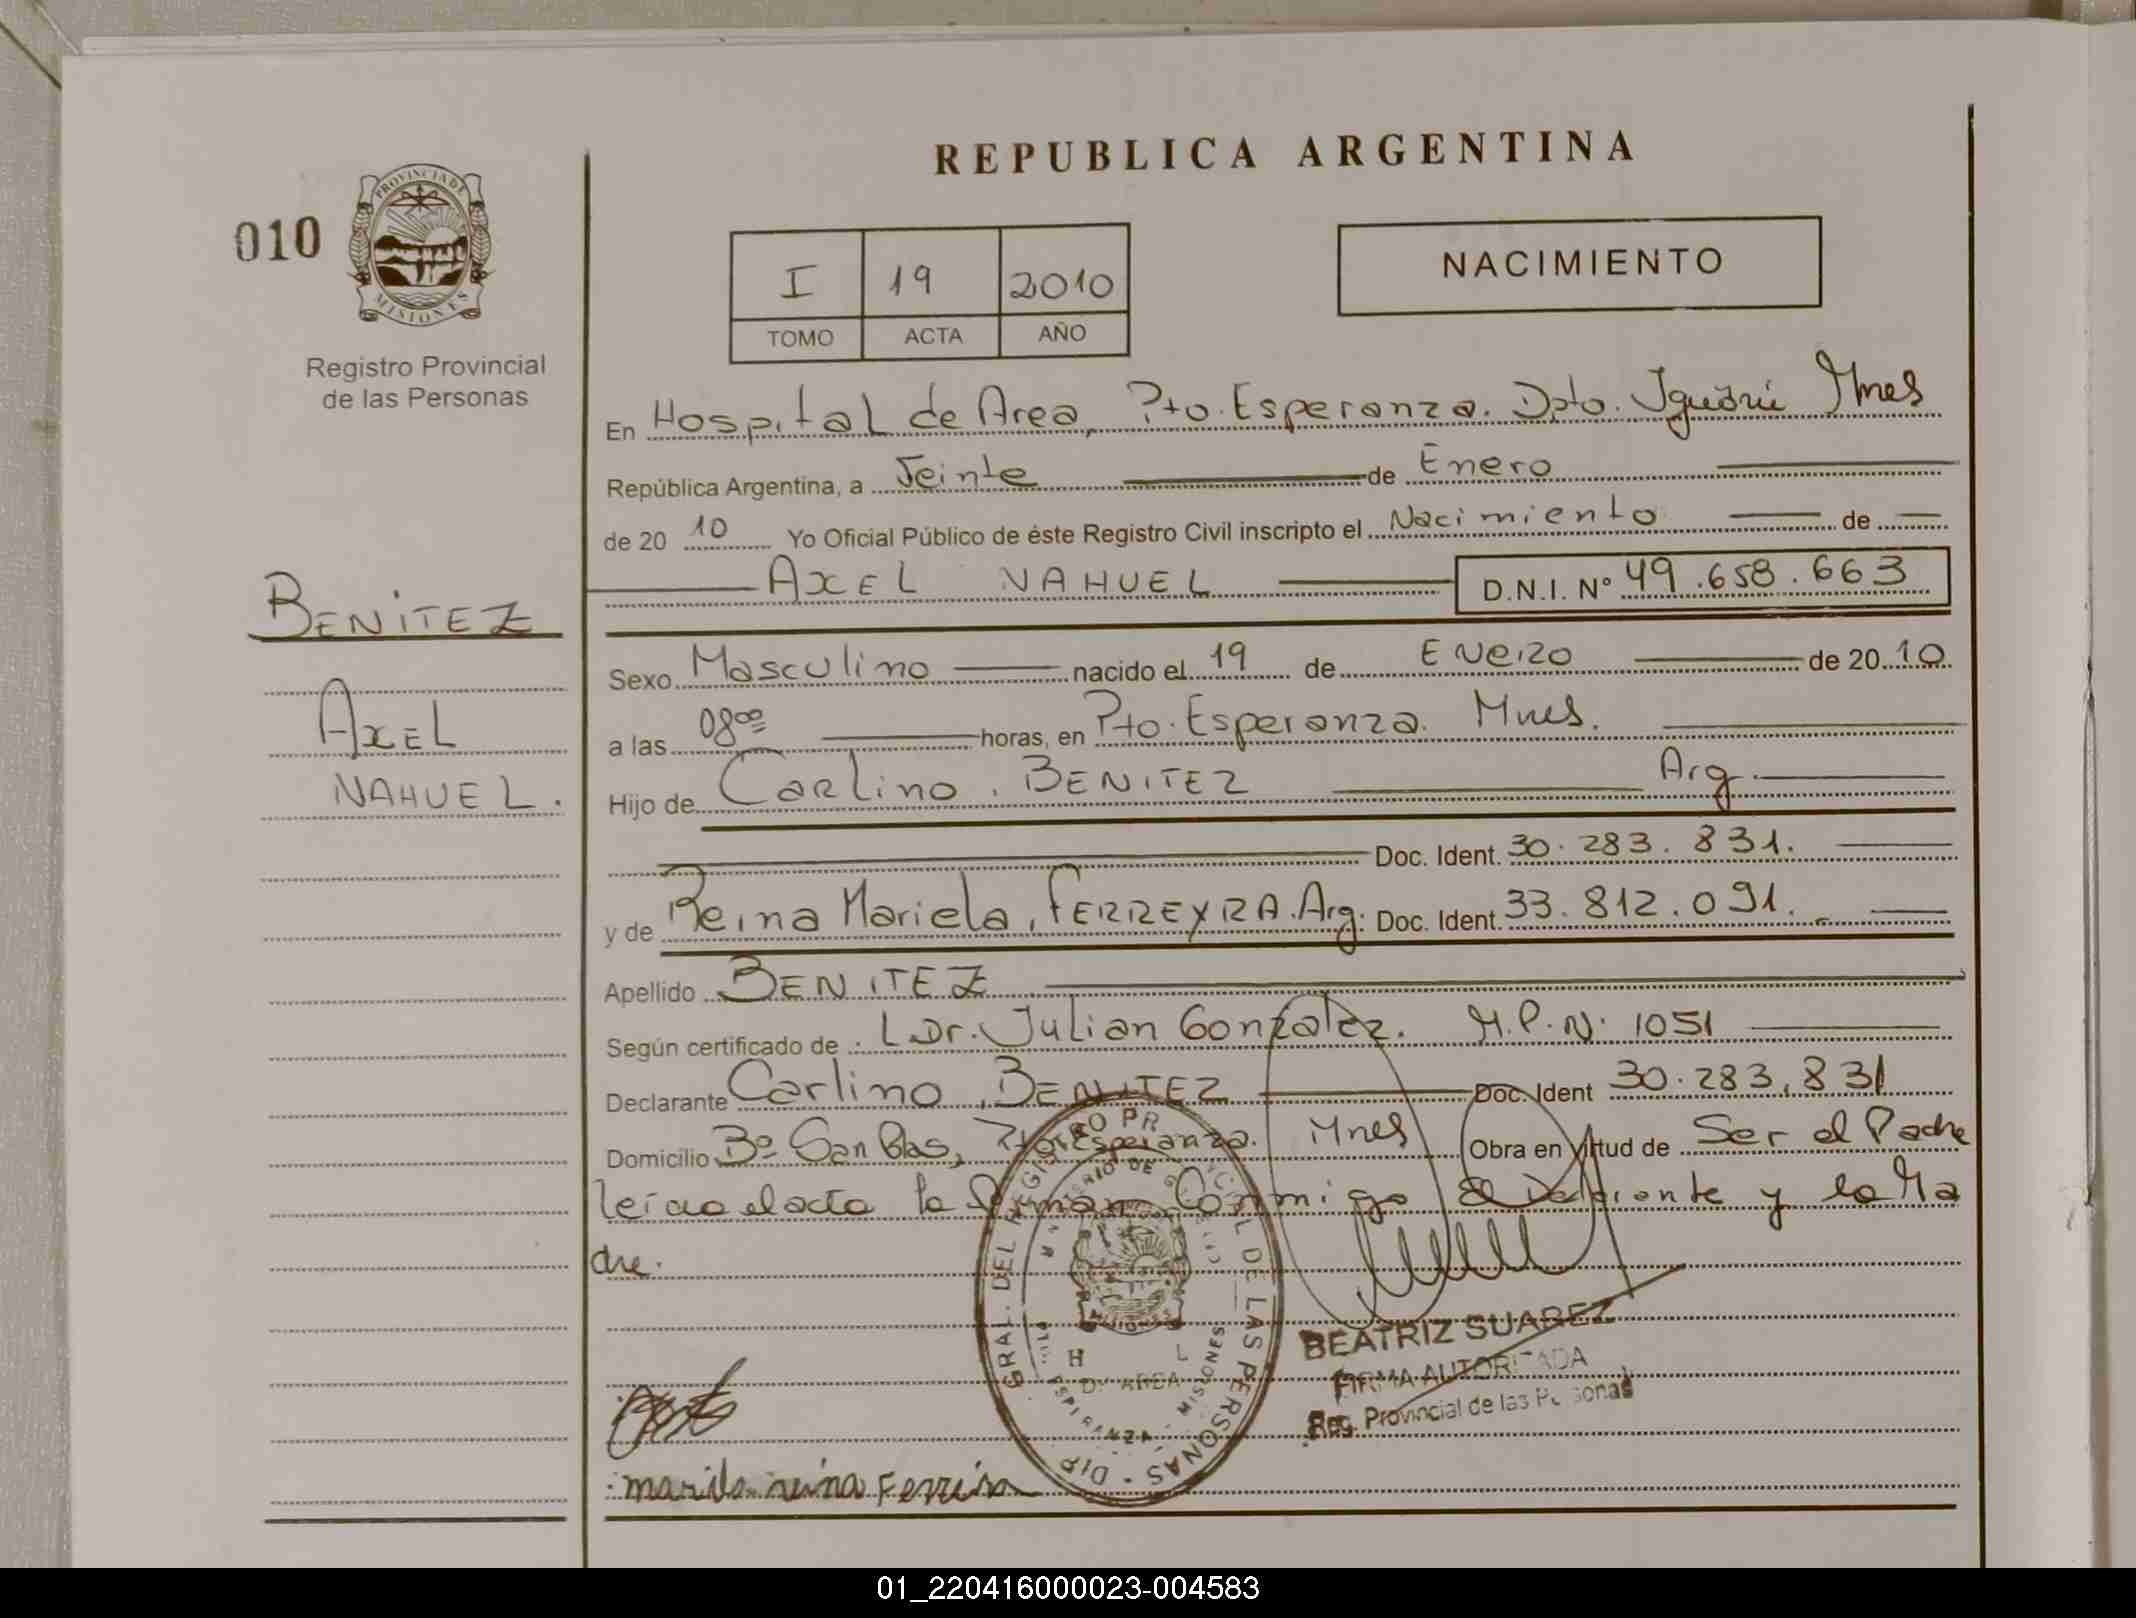 REPUBLICA ARGENTINA
010
PROVINCIA DE
MISIONES
Registro Provincial
de las Personas
I 19 2010
TOMO ACTA AÑO
NACIMIENTO
BENITEZ
AXEL
NAHUEL.
En Hospital de Area, Pto. Esperanza. Dpto. Iguazú Mnes
República Argentina, a Veinte de Enero
de 20 10 Yo Oficial Público de éste Registro Civil inscripto el Nacimiento de
AXEL NAHUEL D.N.I. Nº 49.658.663
Sexo Masculino nacido el 19 de ENERO de 20 10
a las 08⁰⁰ horas, en Pto. Esperanza. Mnes.
Hijo de Carlino, BENITEZ Arg.
Doc. Ident. 30.283.831.
y de Reina Mariela, FERREYRA. Arg. Doc. Ident. 33.812.091.
Apellido BENITEZ
Según certificado de Dr. Julian Gonzalez. M.P.N. 1051
Declarante Carlino, BENITEZ Doc. Ident 30.283.831
Domicilio Bº San Blas, Pto. Esperanza. Mnes Obra en virtud de Ser el Padre
leída el acta la firman Conmigo el Declarante y la Ma
dre.
GRAL. DEL REGISTRO PR CIAL DE LAS PERSONAS - DIR
MISIONES
BEATRIZ SUAREZ
FIRMA AUTORIZADA
Reg. Provincial de las Personas
reina
01_220416000023-004583